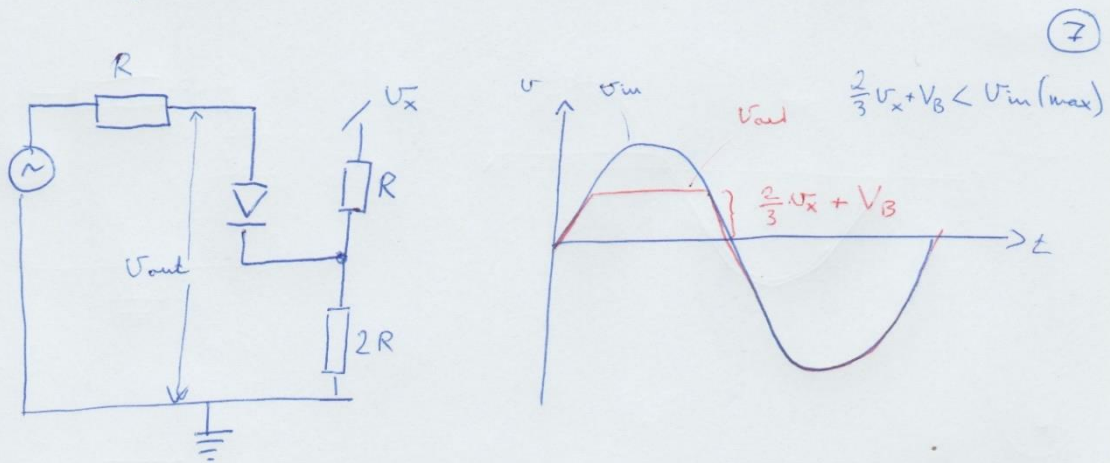 7
R
~
Vout
Vx
R
2R
v
vin
Vout
2/3 Vx + VB < Vin (max)
2/3 Vx + VB
t